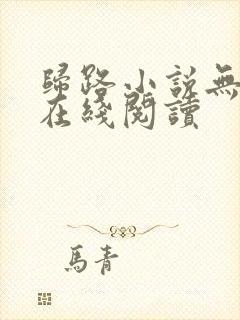 歸路小說無
在綫閱讀
馬青